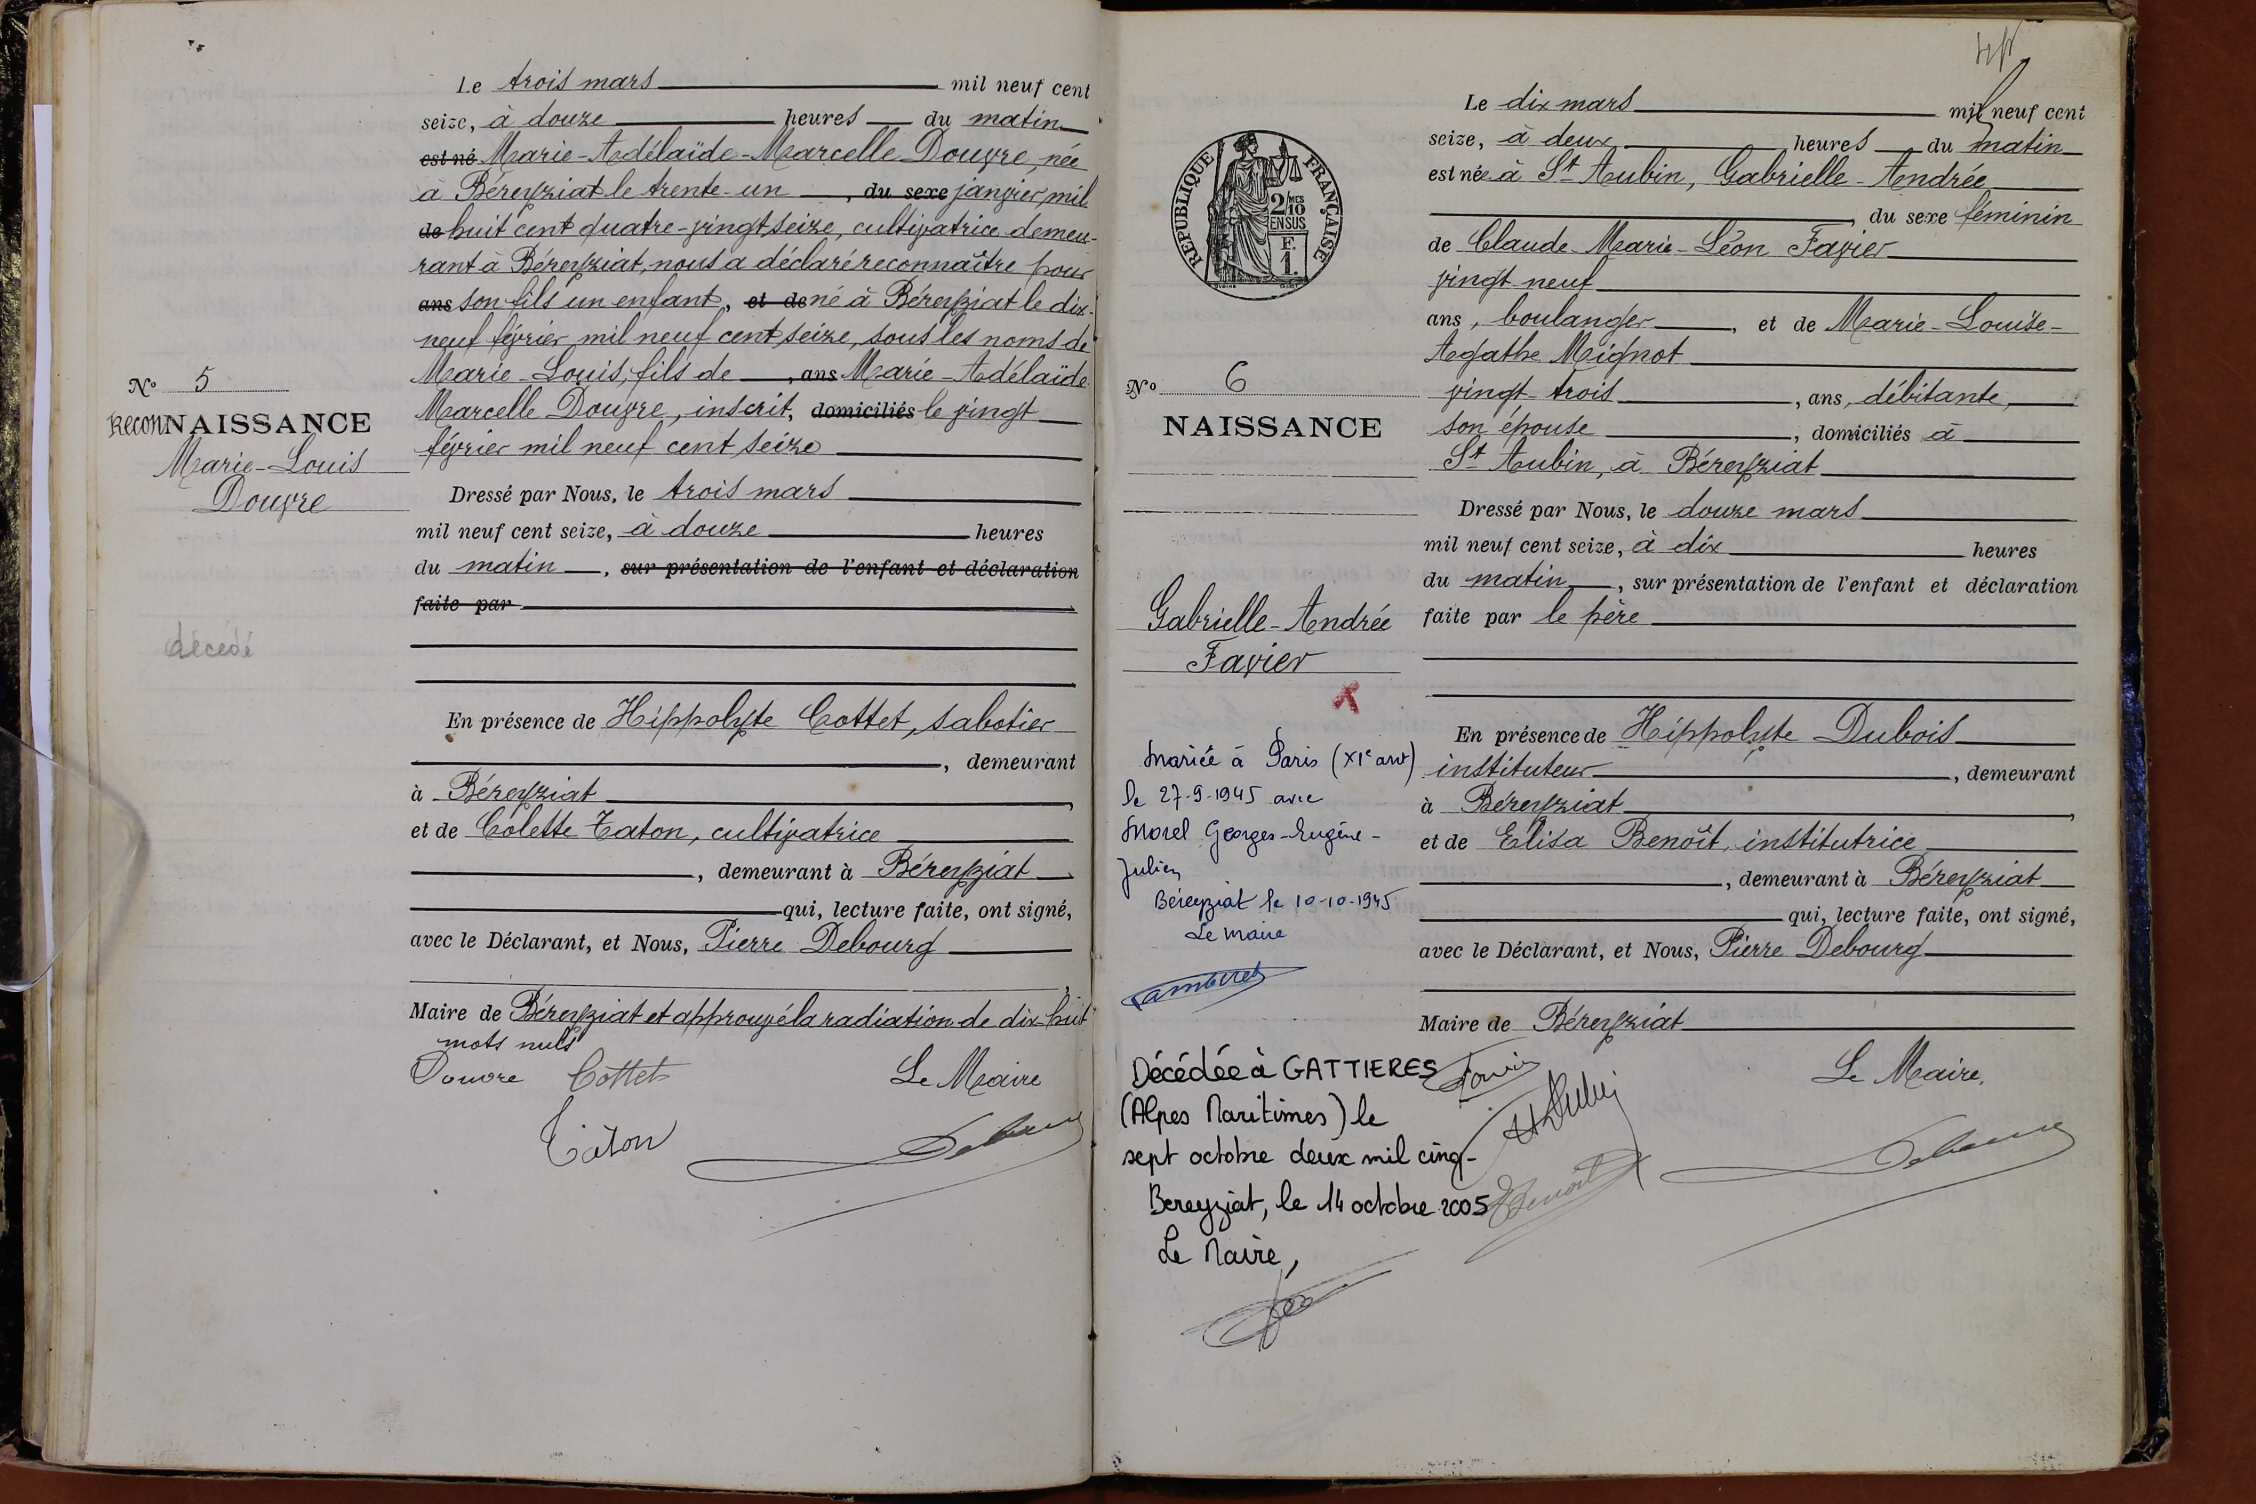 Le trois mars mil neuf cent
seize, à douze heures du matin
est né Marie-Adélaïde-Marcelle Douvre, née
à Béreyziat le trente-un, du sexe janvier mil
de huit cent quatre-vingt seize, cultivatrice demeu-
rant à Béreyziat, nous a déclaré reconnaître pour
ans son fils un enfant, et de né à Béreyziat le dix-
neuf février mil neuf cent seize, sous les noms de
Marie-Louis, fils de, ans Marie-Adélaïde
Marcelle Douvre, inscrit, domiciliés le vingt
février mil neuf cent seize
Dressé par Nous, le trois mars
mil neuf cent seize, à douze heures
du matin, sur présentation de l'enfant et déclaration
faite par
En présence de Hippolyte Cottet, sabotier
, demeurant
à Béreyziat,
et de Colette Taton, cultivatrice
, demeurant à Béreyziat
qui, lecture faite, ont signé,
avec le Déclarant, et Nous, Pierre Debourg
,
Maire de Béreyziat et approuvé la radiation de dix-huit
mots nuls
Douvre Cottet Le Maire
Taton
N° 5
ReconNAISSANCE
Marie-Louis
Douvre
décédé
RÉPUBLIQUE FRANÇAISE
2/10 MES
EN SUS
F.
1.
N° 6
NAISSANCE
Gabrielle-Andrée
Favier
X
Mariée à Paris (XIe arrt)
le 27-9-1945 avec
Morel Georges-Eugène-
Julien
Béreyziat le 10-10-1945
Le maire
Décédée à GATTIERES
(Alpes Maritimes) le
sept octobre deux mil cinq-
Bereyziat, le 14 octobre 2005
Le Maire,
Le dix mars mil neuf cent
seize, à deux heures du matin
est née à St Aubin, Gabrielle-Andrée
, du sexe féminin
de Claude-Marie-Léon Favier
vingt-neuf
ans, boulanger, et de Marie-Louise-
Agathe Mignot
vingt-trois, ans, débitante,
son épouse, domiciliés à
St Aubin, à Béreyziat
Dressé par Nous, le douze mars
mil neuf cent seize, à dix heures
du matin, sur présentation de l'enfant et déclaration
faite par le père
En présence de Hippolyte Dubois
instituteur, demeurant
à Béreyziat,
et de Elisa Benoît, institutrice
, demeurant à Béreyziat
qui, lecture faite, ont signé,
avec le Déclarant, et Nous, Pierre Debourg
Maire de Béreyziat
Le Maire,